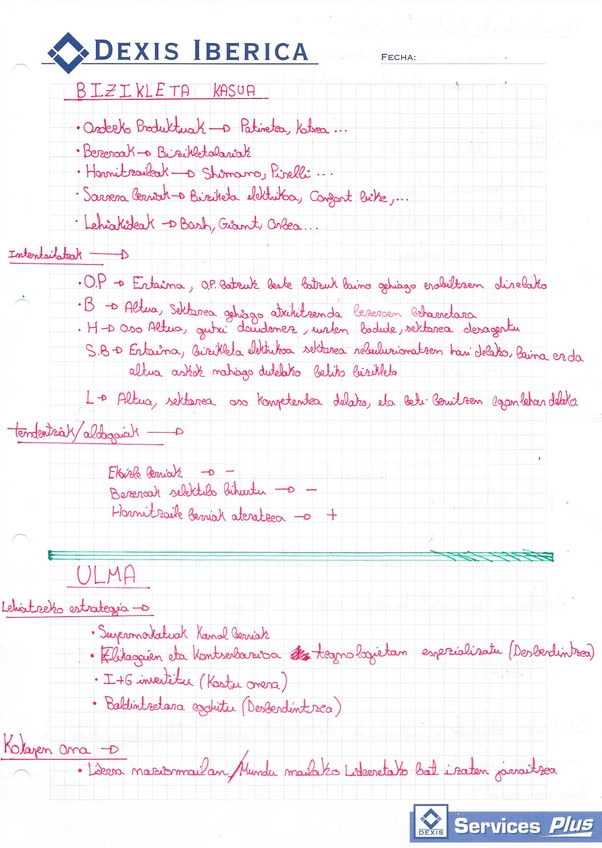 DEXIS IBERICA
FECHA:
BIZIKLETA KASUA
• Ordezko Produktuak → Patinetea, Kotxea ...
• Bezeroak → Bizikletalariak
• Hornitzaileak → Shimano, Pirelli ...
• Sarrera berriak → Bizikleta elektrikoa, Confort bike, ...
• Lehiakideak → Bash, Giant, Orbea ...
Intentsitateak →
• O.P → Ertaina, O.P. batzuk beste batzuk baino gehiago erabiltzen direlako
• B → Altua, Sektorea gehiago atxikitzenda bezeroen beharretara
• H → Oso Altua, gutxi daudenez, usten badute, sektorea desagertu
S.B → Ertaina, bizikleta elektrikoa sektorea rebeluzionatzen hari delako, baina ez da
altua askok nahiago dutelako betiko bizikleta
L → Altua, sektorea oso konpetentea delako, eta beti berritzen egon behar delako
Tendentziak/aldagaiak →
Ekoizle berriak → -
Bezeroak selektibo bihurtu → -
Hornitzaile berriak ateratzea → +
ULMA
Lehiatzeko estrategia →
• Supermerkatuak Kanal berriak
• Elikagaien eta Kontserbazioa tegnologietan espezializatu (Desberdintzea)
• I+G invertitu (Kostu onera)
• Baldintzetara egokitu (Desberdintzea)
Kokapen ona →
• Liderra nazionmailan/Mundu mailako Lideretako bat izaten jarraitzea
DEXIS
Services Plus